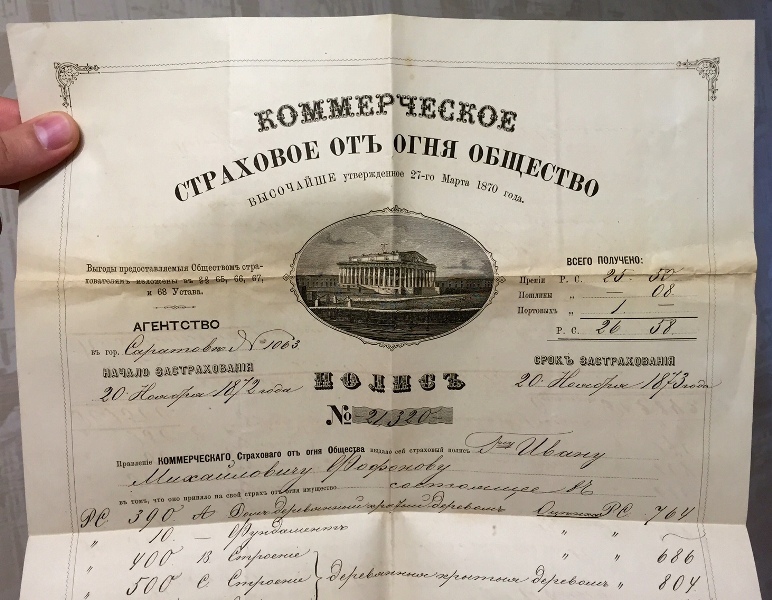 КОММЕРЧЕСКОЕ
СТРАХОВОЕ ОТЪ ОГНЯ ОБЩЕСТВО
ВЫСОЧАЙШЕ утвержденное 27-го Марта 1870 года.
Выгоды предоставляемыя Обществомъ стра-
хователямъ изложены въ §§ 65, 66, 67,
и 68 Устава.
АГЕНТСТВО
въ гор. Саратовѣ № 1063
НАЧАЛО ЗАСТРАХОВАНІЯ
20 Ноября 1872 года
ВСЕГО ПОЛУЧЕНО:
Преміи Р. С. 25 50
Пошлины „ — 08
Портовыхъ „ 1. —
Р. С. 26 58
СРОКЪ ЗАСТРАХОВАНІЯ
20 Ноября 1873 года
ПОЛИСЪ
№ 21,320
Правленіе КОММЕРЧЕСКАГО Страховаго отъ огня Общества выдало сей страховый полисъ Ивану
Михайловичу Фофонову
въ томъ, что оно приняло на свой страхъ отъ огня имущество состоящее въ
РС 390 А Домъ деревянный крытый деревомъ РС 764
„ 10. — Фундаментъ „ „
„ 400 В. Строеніе „ „ 686
„ 500 С. Строеніе } деревянныя крытыя деревомъ „ 804